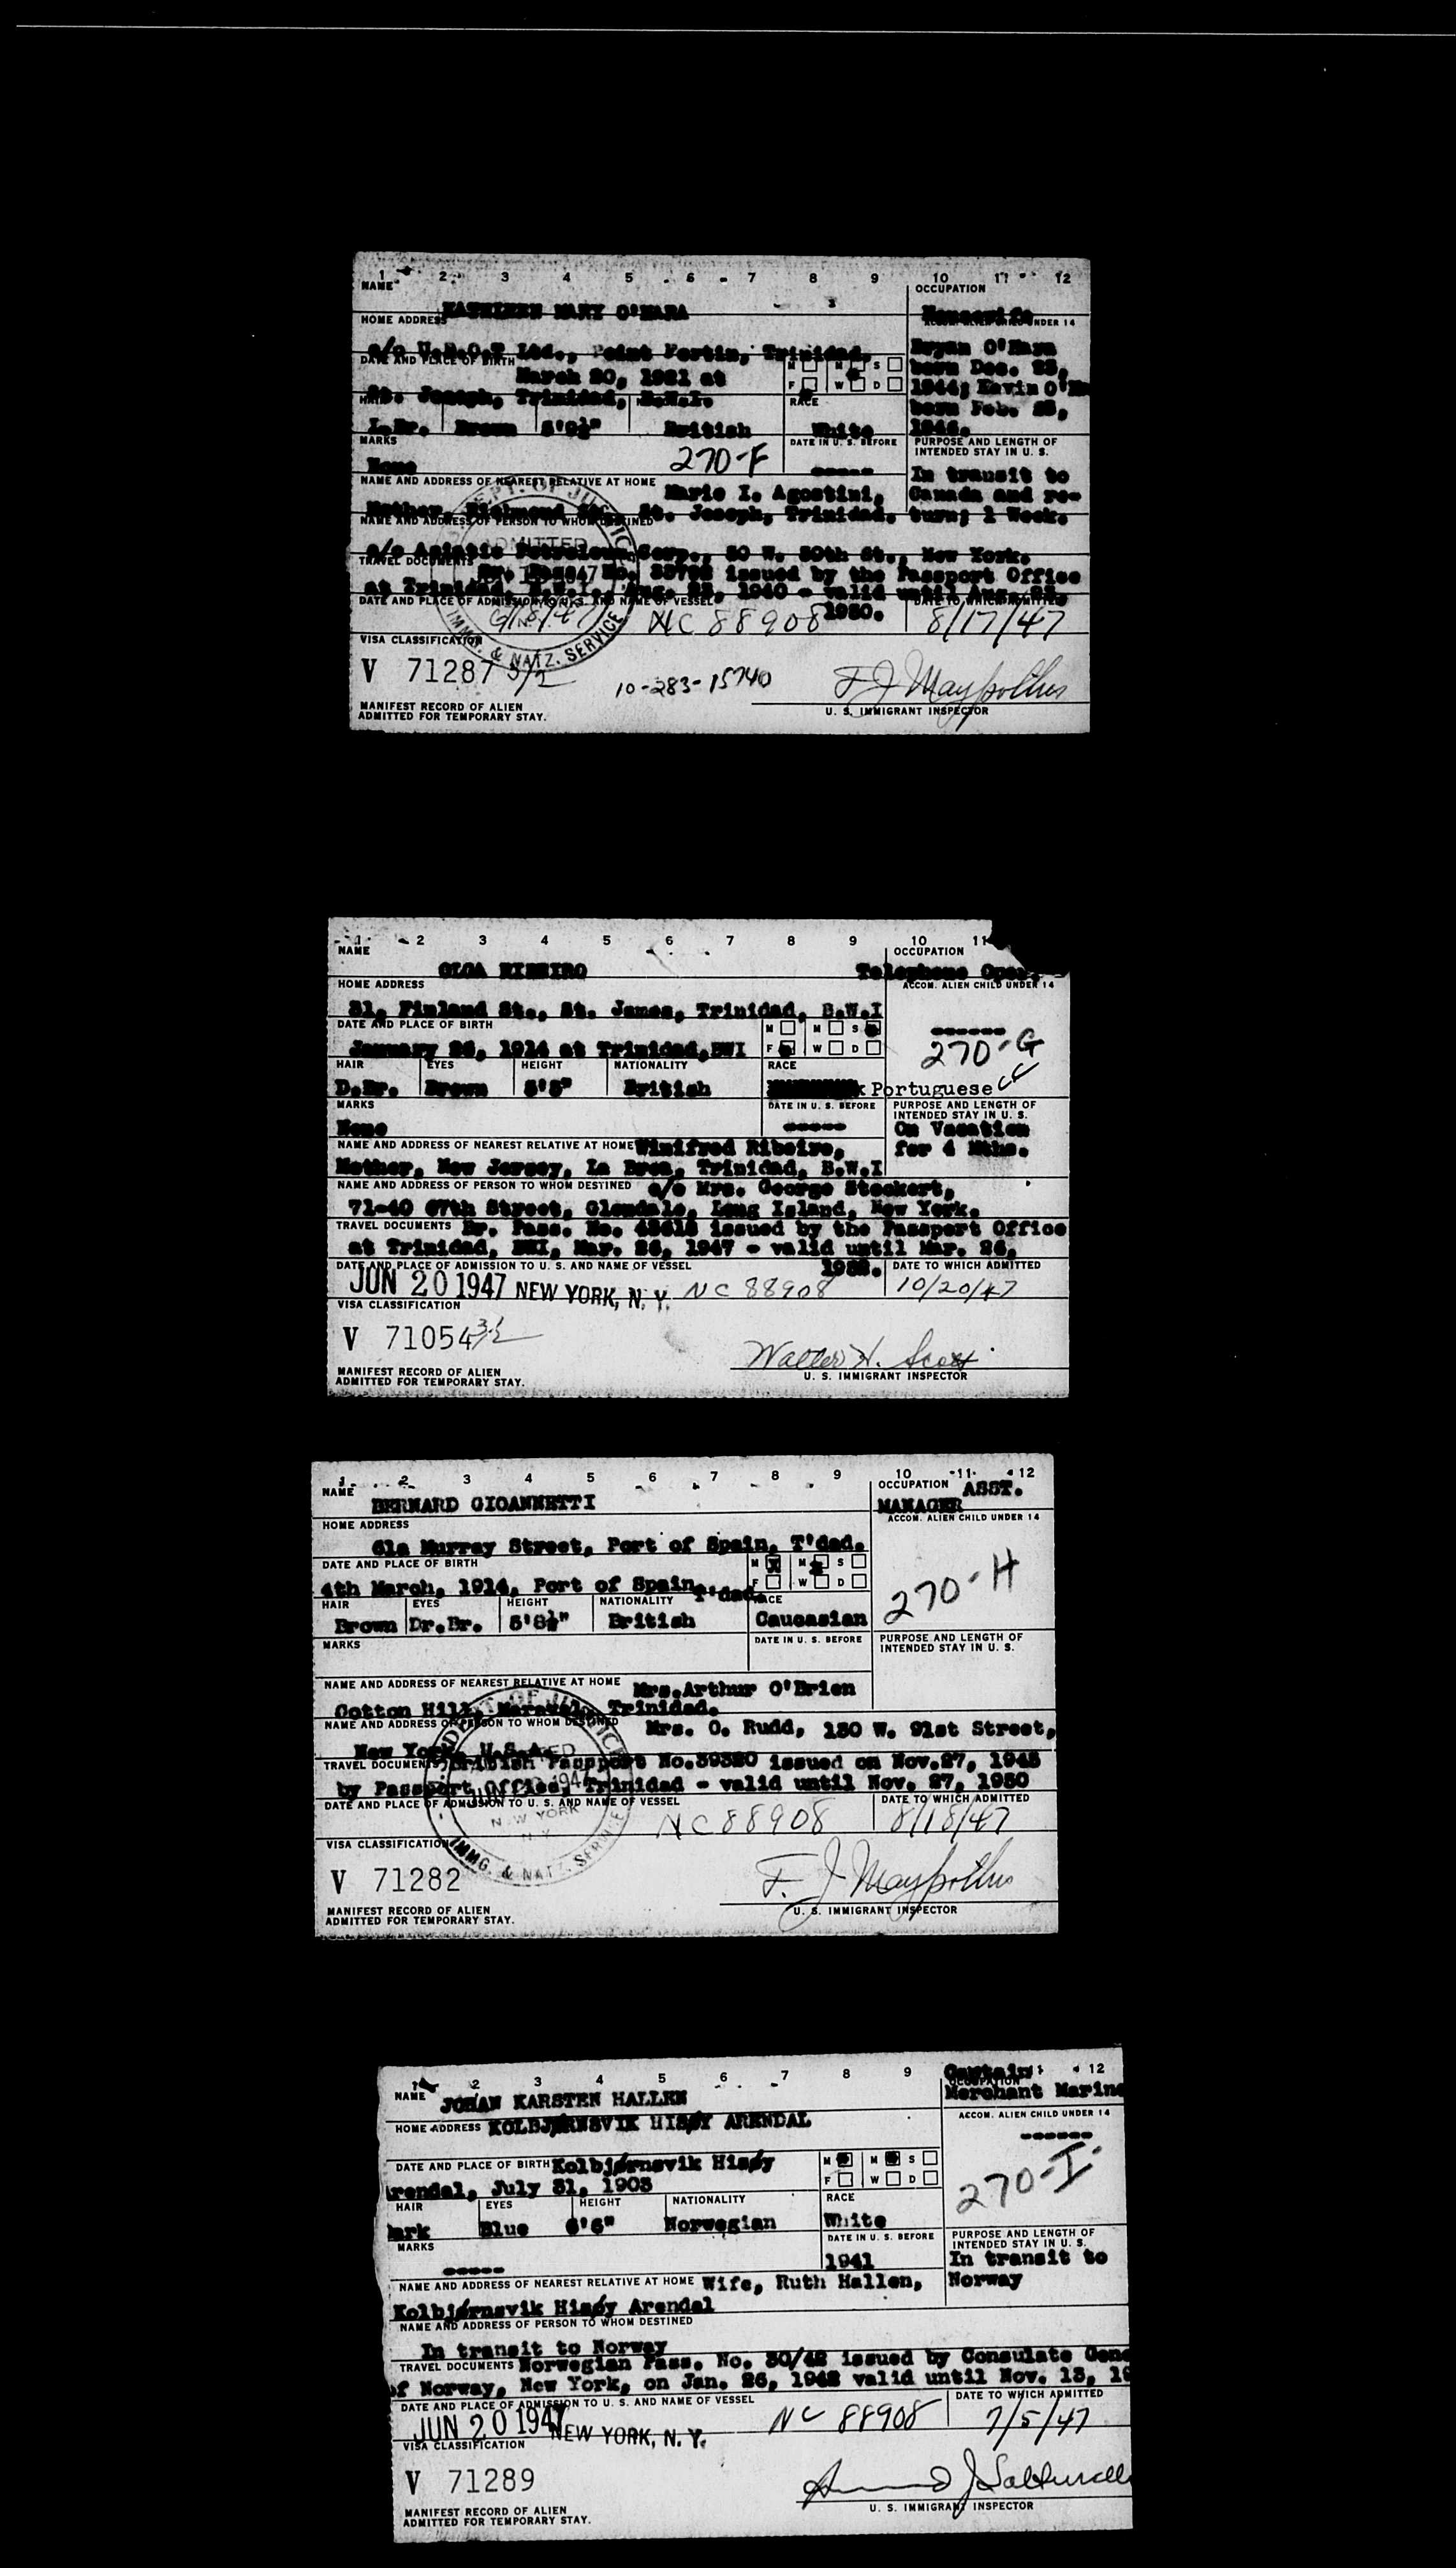 1 2 3 4 5 6 7 8 9 10 11 12
NAME OCCUPATION
KATHLEEN MARY O'HARA Housewife
HOME ADDRESS ACCOM. ALIEN CHILD UNDER 14
c/o U.B.O.T Ltd., Point Fortin, Trinidad. Bryan O'Hara
DATE AND PLACE OF BIRTH M M S born Dec. 23,
March 20, 1921 at F W D 1944; Kevin O'Ha
St. Joseph, Trinidad, B.W.I. RACE born Feb. 25,
L.Br. Brown 5'9½" British White 1946.
MARKS DATE IN U. S. BEFORE PURPOSE AND LENGTH OF
INTENDED STAY IN U. S.
None 270-F ----- In transit to
NAME AND ADDRESS OF NEAREST RELATIVE AT HOME Marie I. Agostini, Canada and re-
Mother, Richmond St., St. Joseph, Trinidad. turn; 1 Week.
NAME AND ADDRESS OF PERSON TO WHOM DESTINED
c/o Asiatic Petroleum Corp., 50 W. 50th St., New York.
TRAVEL DOCUMENTS Br. Pass. No. issued by the Passport Office
at Trinidad, B.W.I., Aug. 23, 1940 - valid until Aug. 23,
DATE AND PLACE OF ADMISSION TO U. S. AND NAME OF VESSEL 1950. DATE TO WHICH ADMITTED
NC 88908 8/17/47
DEPT. OF JUSTICE
ADMITTED
IMMG. & NATZ. SERVICE
VISA CLASSIFICATION
V 71287 3/2 10-283-15740
U. S. IMMIGRANT INSPECTOR
MANIFEST RECORD OF ALIEN
ADMITTED FOR TEMPORARY STAY.
1 2 3 4 5 6 7 8 9 10 11
NAME OCCUPATION
OLGA RIBEIRO Telephone Oper.
HOME ADDRESS ACCOM. ALIEN CHILD UNDER 14
31, Finland St., St. James, Trinidad, B.W.I
DATE AND PLACE OF BIRTH M M S ------
January 26, 1914 at Trinidad, BWI F W D 270-G
HAIR EYES HEIGHT NATIONALITY RACE
D.Br. Brown 5'5" British Portuguese
MARKS DATE IN U. S. BEFORE PURPOSE AND LENGTH OF
INTENDED STAY IN U. S.
None ----- On Vacation
NAME AND ADDRESS OF NEAREST RELATIVE AT HOME Winifred Ribeiro, for 4 Mths.
Mother, New Jersey, La Brea, Trinidad, B.W.I
NAME AND ADDRESS OF PERSON TO WHOM DESTINED c/o Mrs. George Steckert,
71-40 67th Street, Glendale, Long Island, New York.
TRAVEL DOCUMENTS Br. Pass. No. issued by the Passport Office
at Trinidad, BWI, Mar. 26, 1947 - valid until Mar. 26,
DATE AND PLACE OF ADMISSION TO U. S. AND NAME OF VESSEL 1952. DATE TO WHICH ADMITTED
JUN 20 1947 NEW YORK, N. Y. NC 88908 10/20/47
VISA CLASSIFICATION
V 71054 3/2
Walter H. Scott
U. S. IMMIGRANT INSPECTOR
MANIFEST RECORD OF ALIEN
ADMITTED FOR TEMPORARY STAY.
1 2 3 4 5 6 7 8 9 10 11 12
NAME OCCUPATION ASST.
BERNARD GIOANNETTI MANAGER
HOME ADDRESS ACCOM. ALIEN CHILD UNDER 14
61a Murray Street, Port of Spain, T'dad.
DATE AND PLACE OF BIRTH M X M S
4th March, 1914, Port of Spain, T'dad. F W D 270-H
HAIR EYES HEIGHT NATIONALITY RACE
Brown Dr.Br. 5'8½" British Caucasian
MARKS DATE IN U. S. BEFORE PURPOSE AND LENGTH OF
INTENDED STAY IN U. S.
NAME AND ADDRESS OF NEAREST RELATIVE AT HOME Mrs.Arthur O'Brien
Cotton Hill, Maraval, Trinidad.
NAME AND ADDRESS OF PERSON TO WHOM DESTINED Mrs. O. Rudd, 150 W. 91st Street,
New York, U.S.A.
TRAVEL DOCUMENTS British Passport No.39320 issued on Nov.27, 1945
by Passport Office, Trinidad - valid until Nov. 27, 1950
DATE AND PLACE OF ADMISSION TO U. S. AND NAME OF VESSEL DATE TO WHICH ADMITTED
NC 88908 8/18/47
DEPT. OF JUSTICE
NEW YORK
N.Y.
IMMG. & NATZ. SERVICE
VISA CLASSIFICATION
V 71282
U. S. IMMIGRANT INSPECTOR
MANIFEST RECORD OF ALIEN
ADMITTED FOR TEMPORARY STAY.
1 2 3 4 5 6 7 8 9 Captain 12
NAME JOHAN KARSTEN HALLEN OCCUPATION
Merchant Marine
HOME ADDRESS KOLBJØRNSVIK HISØY ARENDAL ACCOM. ALIEN CHILD UNDER 14
------
DATE AND PLACE OF BIRTH Kolbjørnsvik Hisøy M M S
Arendal, July 31, 1903 F W D 270-I
HAIR EYES HEIGHT NATIONALITY RACE
Dark Blue 6'6" Norwegian White
MARKS DATE IN U. S. BEFORE PURPOSE AND LENGTH OF
INTENDED STAY IN U. S.
----- 1941 In transit to
NAME AND ADDRESS OF NEAREST RELATIVE AT HOME Wife, Ruth Hallen, Norway
Kolbjørnsvik Hisøy Arendal
NAME AND ADDRESS OF PERSON TO WHOM DESTINED
In transit to Norway
TRAVEL DOCUMENTS Norwegian Pass. No. 30/42 issued by Consulate Gene
of Norway, New York, on Jan. 26, 1942 valid until Nov. 13, 19
DATE AND PLACE OF ADMISSION TO U. S. AND NAME OF VESSEL DATE TO WHICH ADMITTED
JUN 20 1947 NEW YORK, N. Y. NC 88908 7/5/47
VISA CLASSIFICATION
V 71289
U. S. IMMIGRANT INSPECTOR
MANIFEST RECORD OF ALIEN
ADMITTED FOR TEMPORARY STAY.